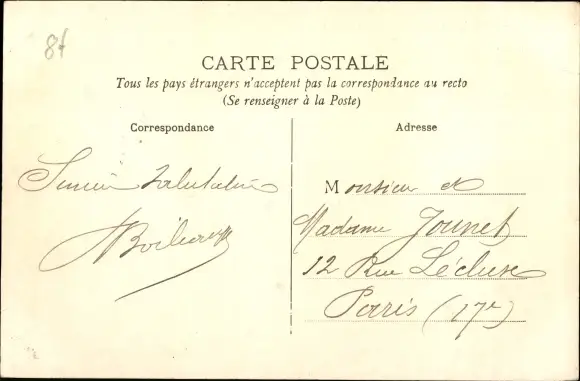 8f
CARTE POSTALE
Tous les pays étrangers n'acceptent pas la correspondance au recto
(Se renseigner à la Poste)
Correspondance
Adresse
Monsieur et
Madame Jounet
12 Rue Lécluse
Paris (17e)
salutations